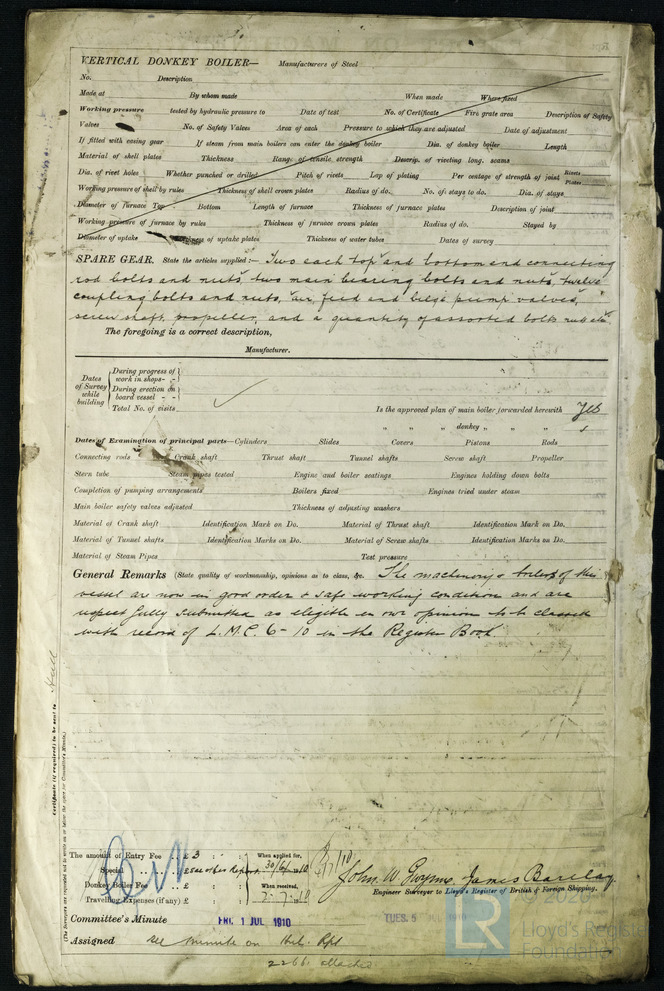 VERTICAL DONKEY BOILER— Manufacturers of Steel
No. Description
Made at By whom made When made Where fixed
Working pressure tested by hydraulic pressure to Date of test No. of Certificate Fire grate area Description of Safety
Valves No. of Safety Valves Area of each Pressure to which they are adjusted Date of adjustment
If fitted with easing gear If steam from main boilers can enter the donkey boiler Dia. of donkey boiler Length
Material of shell plates Thickness Range of tensile strength Descrip. of riveting long. seams
Dia. of rivet holes Whether punched or drilled Pitch of rivets Lap of plating Per centage of strength of joint Rivets Plates
Working pressure of shell by rules Thickness of shell crown plates Radius of do. No. of stays to do. Dia. of stays
Diameter of furnace Top Bottom Length of furnace Thickness of furnace plates Description of joint
Working pressure of furnace by rules Thickness of furnace crown plates Radius of do. Stayed by
Diameter of uptake of uptake plates Thickness of water tubes Dates of survey
SPARE GEAR. State the articles supplied:— Two each top and bottom end connecting
rod bolts and nuts, two main bearing bolts and nuts, twelve
coupling bolts and nuts, air, feed and bilge pump valves,
screw shaft, propeller, and a quantity of assorted bolts nuts etc.
The foregoing is a correct description,
Manufacturer.
Dates of Survey while building
During progress of work in shops - -
During erection on board vessel - -
Total No. of visits
Is the approved plan of main boiler forwarded herewith Yes
" " " donkey " " "
Dates of Examination of principal parts—Cylinders Slides Covers Pistons Rods
Connecting rods Crank shaft Thrust shaft Tunnel shafts Screw shaft Propeller
Stern tube Steam pipes tested Engine and boiler seatings Engines holding down bolts
Completion of pumping arrangements Boilers fixed Engines tried under steam
Main boiler safety valves adjusted Thickness of adjusting washers
Material of Crank shaft Identification Mark on Do. Material of Thrust shaft Identification Mark on Do.
Material of Tunnel shafts Identification Marks on Do. Material of Screw shafts Identification Marks on Do.
Material of Steam Pipes Test pressure
General Remarks (State quality of workmanship, opinions as to class, &c. The machinery & boilers of this
vessel are now in good order & safe working condition and are
respectfully submitted as eligible in our opinion to be classed
with record of L.M.C. 6-10 in the Register Book.
Certificate (if required) to be sent to Hull
(The Surveyors are requested not to write on or below the space for Committee's Minute.)
The amount of Entry Fee .. £ 3 : : When applied for,
Special .. £ see other Report 30/6/1910
Donkey Boiler Fee .. £ : : When received,
Travelling Expenses (if any) £ : : 7-7-1910
John W Gwynne James Barclay
Engineer Surveyor to Lloyd's Register of British & Foreign Shipping.
Committee's Minute FRI. 1 JUL 1910 TUES. 5 1910
Assigned see minute on Hul. Rpt
2266 attached
LR
© 2020
Lloyd's Register
Foundation